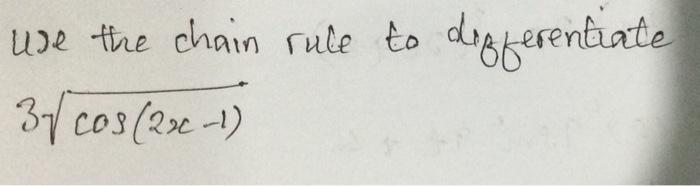 use the chain rule to differentiate
3√cos(2x-1)